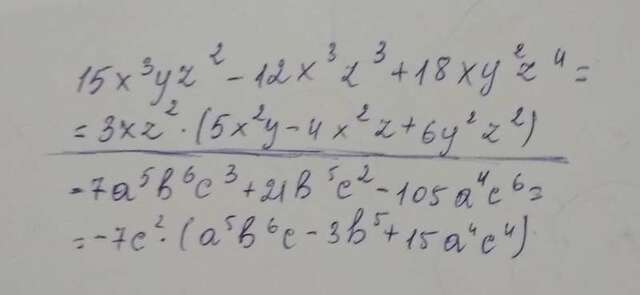 15x³yz² - 12x³z³ + 18xy²z⁴ =
= 3xz² · (5x²y - 4x²z + 6y²z²)
-7a⁵b⁶c³ + 21b⁵c² - 105a⁴c⁶ =
= -7c² · (a⁵b⁶c - 3b⁵ + 15a⁴c⁴)